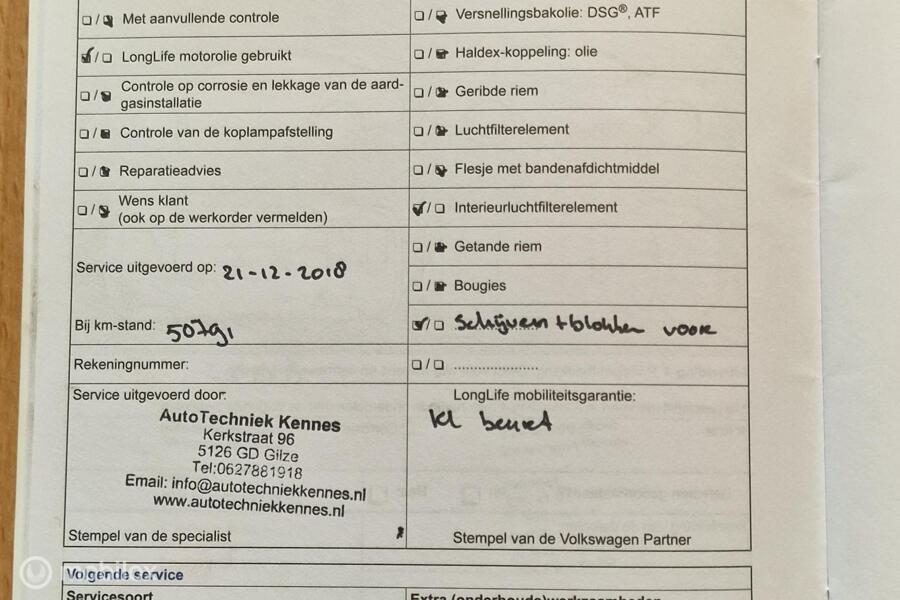 Met aanvullende controle
LongLife motorolie gebruikt
Controle op corrosie en lekkage van de aard-
gasinstallatie
Controle van de koplampafstelling
Reparatieadvies
Wens klant
(ook op de werkorder vermelden)
Service uitgevoerd op: 21-12-2018
Bij km-stand: 50791
Rekeningnummer:
Service uitgevoerd door:
AutoTechniek Kennes
Kerkstraat 96
5126 GD Gilze
Tel:0627881918
Email: info@autotechniekkennes.nl
www.autotechniekkennes.nl
Stempel van de specialist
Versnellingsbakolie: DSG®, ATF
Haldex-koppeling: olie
Geribde riem
Luchtfilterelement
Flesje met bandenafdichtmiddel
Interieurluchtfilterelement
Getande riem
Bougies
Schijven + blokken voor
LongLife mobiliteitsgarantie:
Stempel van de Volkswagen Partner
Volgende service
Servicesoort
Extra (onderhouds)werkzaamheden